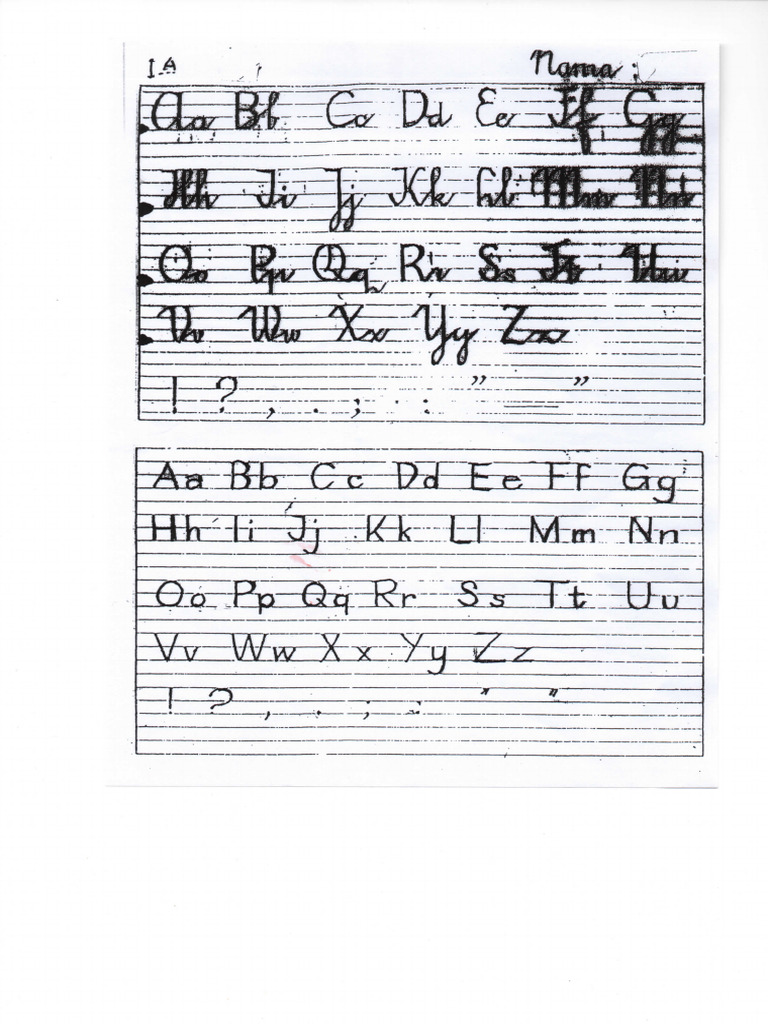 I A Nama :
Aa Bb Cc Dd Ee Ff Gg
Hh Ii Jj Kk Ll Mm Nn
Oo Pp Qq Rr Ss Tt Uu
Vv Ww Xx Yy Zz
! ? , . ; : " — "
Aa Bb Cc Dd Ee Ff Gg
Hh Ii Jj Kk Ll Mm Nn
Oo Pp Qq Rr Ss Tt Uu
Vv Ww Xx Yy Zz
! ? , . ; : " "